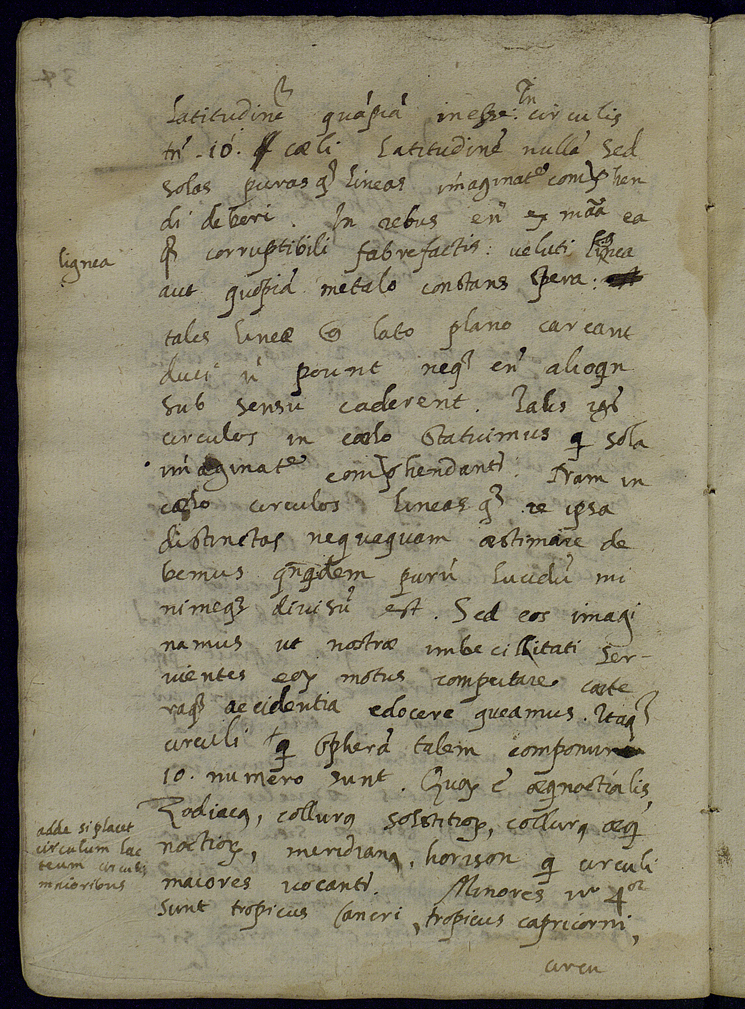 Latitudinē quāpiā inesse. In circulis
tn̄ .10. cæli Latitudinē nullā sed
solas puras q̨ lineas imaginatᵉ comp̄hen
di deberi. In rebus en̄ ex mātā ea
q̨ corruptibili fabrefactis: veluti lignea
lignea
aut quopiā metalo constans spera:
tales lineæ lato plano careant
duci n̄ pount neq̨ en̄ alioqn
sub sensū caderent. Tales
circulos in cœlo statuimus q sola
imaginatᵉ comp̄hendantʳ. Nam in
cœlo circulos lineas q̨ re ipsa
distinctas nequaquam æstimare de
bemus qn̄qdem purū lucidū mi
nimeq̨ divisū est. Sed eos imagi
namus ut nostræ imbecillitati ser-
vientes eoꝝ motus computare cæte
raq̨ accidentia edocere queamus. Itaq̨
circuli q spherā talem componunt
10. numero sunt. Quoꝝ ē æqnoctialis,
Zodiacꝰ, collurꝰ solstitioꝝ, collurꝰ æq
noctioꝝ, meridianꝰ, horison q circuli
maiores vocantʳ. Minores vᵒ 4ᵒʳ
sunt tropicus Cancri, tropicus capricorni,
adde si placet
circulum lac
teum circulis
maioribus
circu